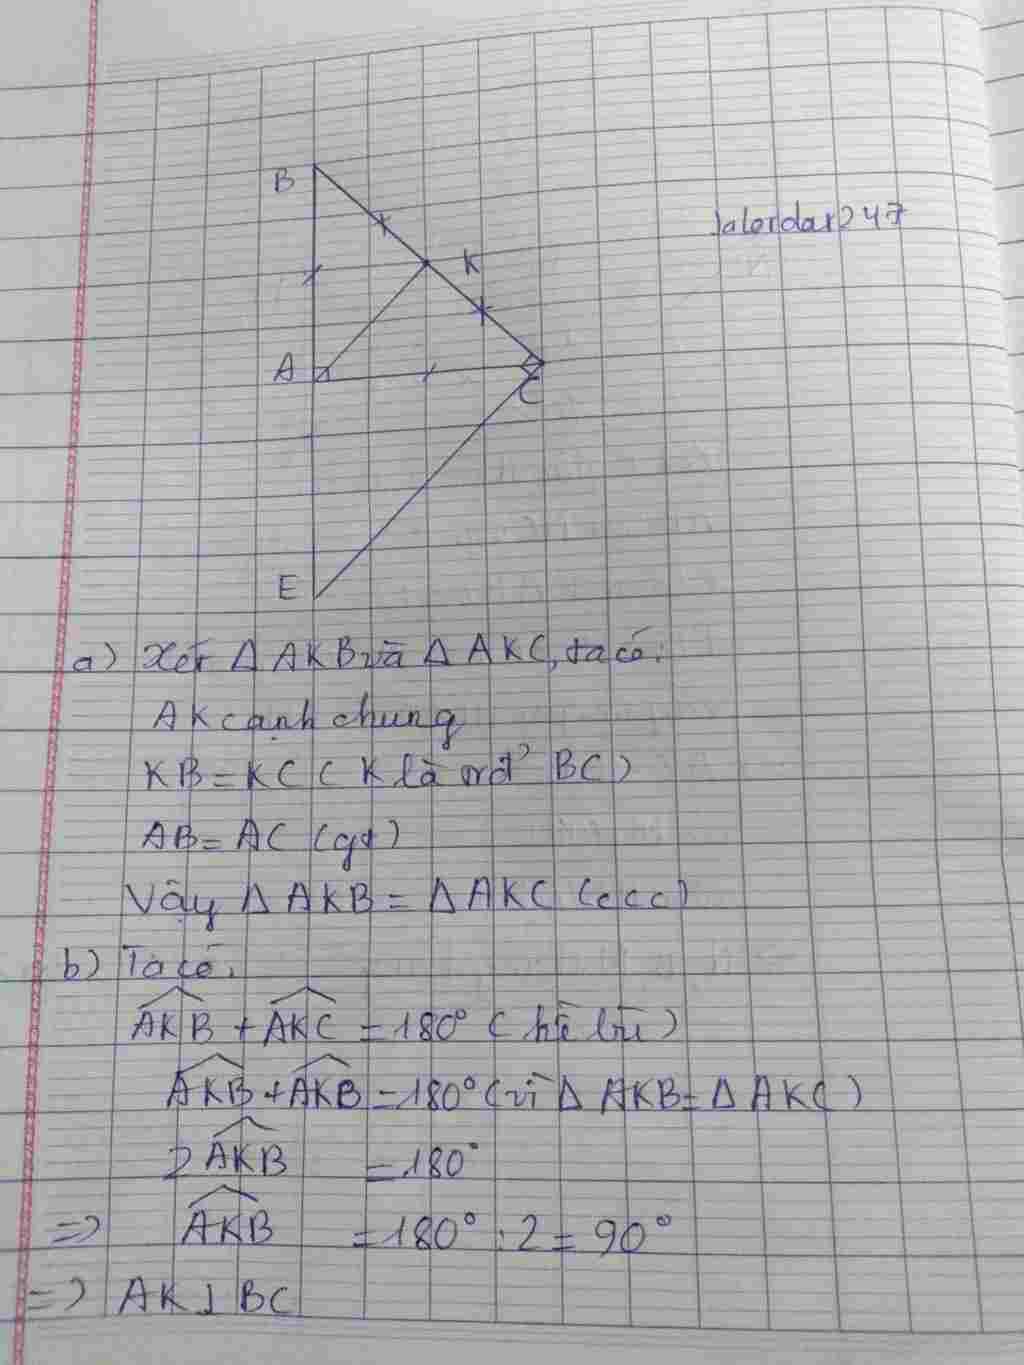 B
K
Jalendar247
A
C
E
a) Xét Δ AKB và Δ AKC, ta có:
AK cạnh chung
KB = KC ( K là trđ BC)
AB = AC (gt)
Vậy Δ AKB = Δ AKC (ccc)
b) Ta có:
\widehat{AKB} + \widehat{AKC} = 180° ( kề bù )
\widehat{AKB} + \widehat{AKB} = 180° (vì Δ AKB = Δ AKC )
2 \widehat{AKB} = 180°
=> \widehat{AKB} = 180° : 2 = 90°
=> AK ⊥ BC